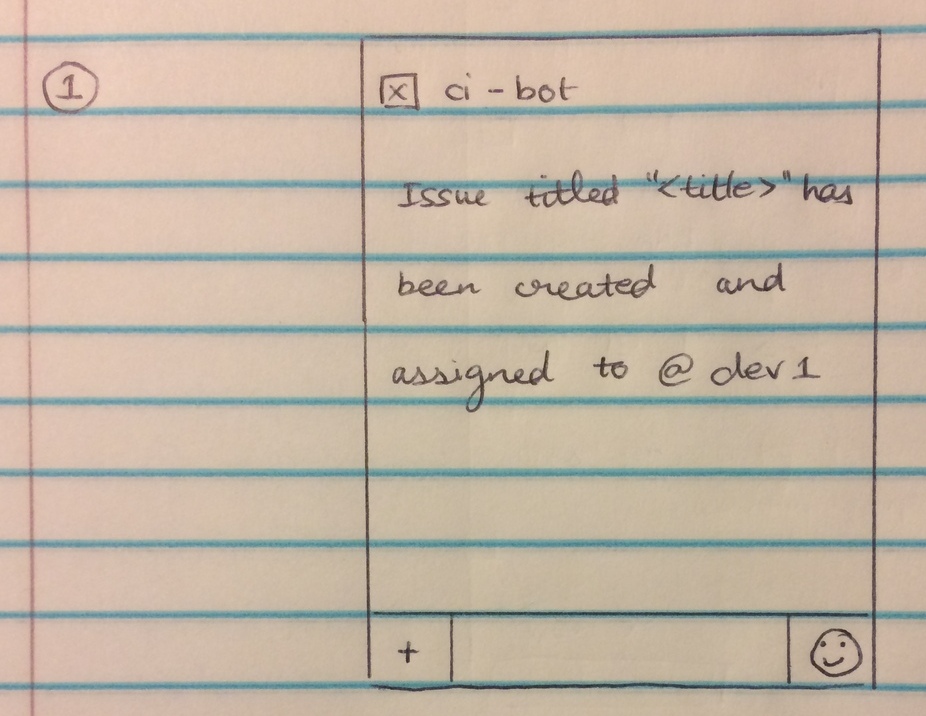 1
x ci-bot
Issue titled "<title>" has
been created and
assigned to @dev1
+